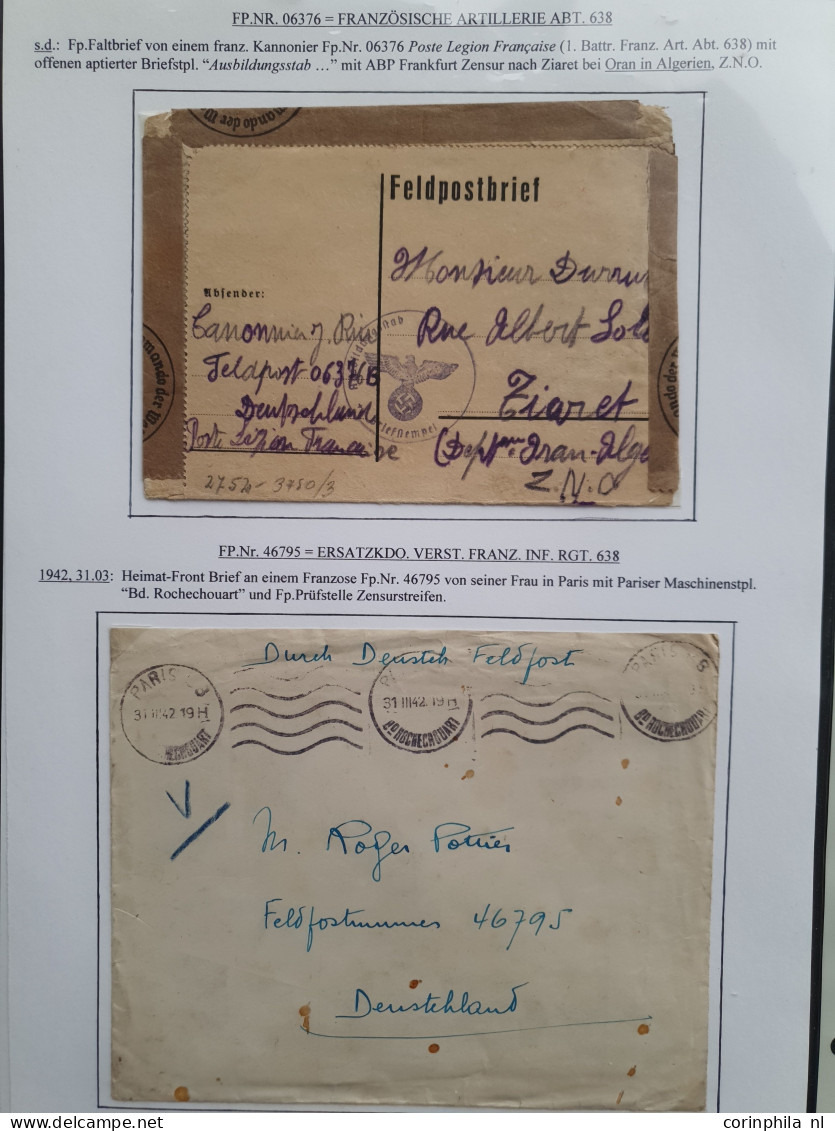 FP.NR. 06376 = FRANZÖSISCHE ARTILLERIE ABT. 638
s.d.: Fp.Faltbrief von einem franz. Kannonier Fp.Nr. 06376 Poste Legion Française (1. Battr. Franz. Art. Abt. 638) mit
offenen aptierter Briefstpl. “Ausbildungsstab …” mit ABP Frankfurt Zensur nach Ziaret bei Oran in Algerien, Z.N.O.
mando der W
Feldpostbrief
Monsieur
Absender:
Rue Albert
Feldpost 06376B
Deutschland
Tiaret
Oran-Alge
Z.N.O
2752- 3750/3
mmando der We
FP.Nr. 46795 = ERSATZKDO. VERST. FRANZ. INF. RGT. 638
1942, 31.03: Heimat-Front Brief an einem Franzose Fp.Nr. 46795 von seiner Frau in Paris mit Pariser Maschinenstpl.
“Bd. Rochechouart” und Fp.Prüfstelle Zensurstreifen.
Durch Deutsch Feldpost
PARIS
31 III 42 19H
BD ROCHECHOUART
M. Roger Pottier
Feldpostnummer 46795
Deustchland
corinphila nl